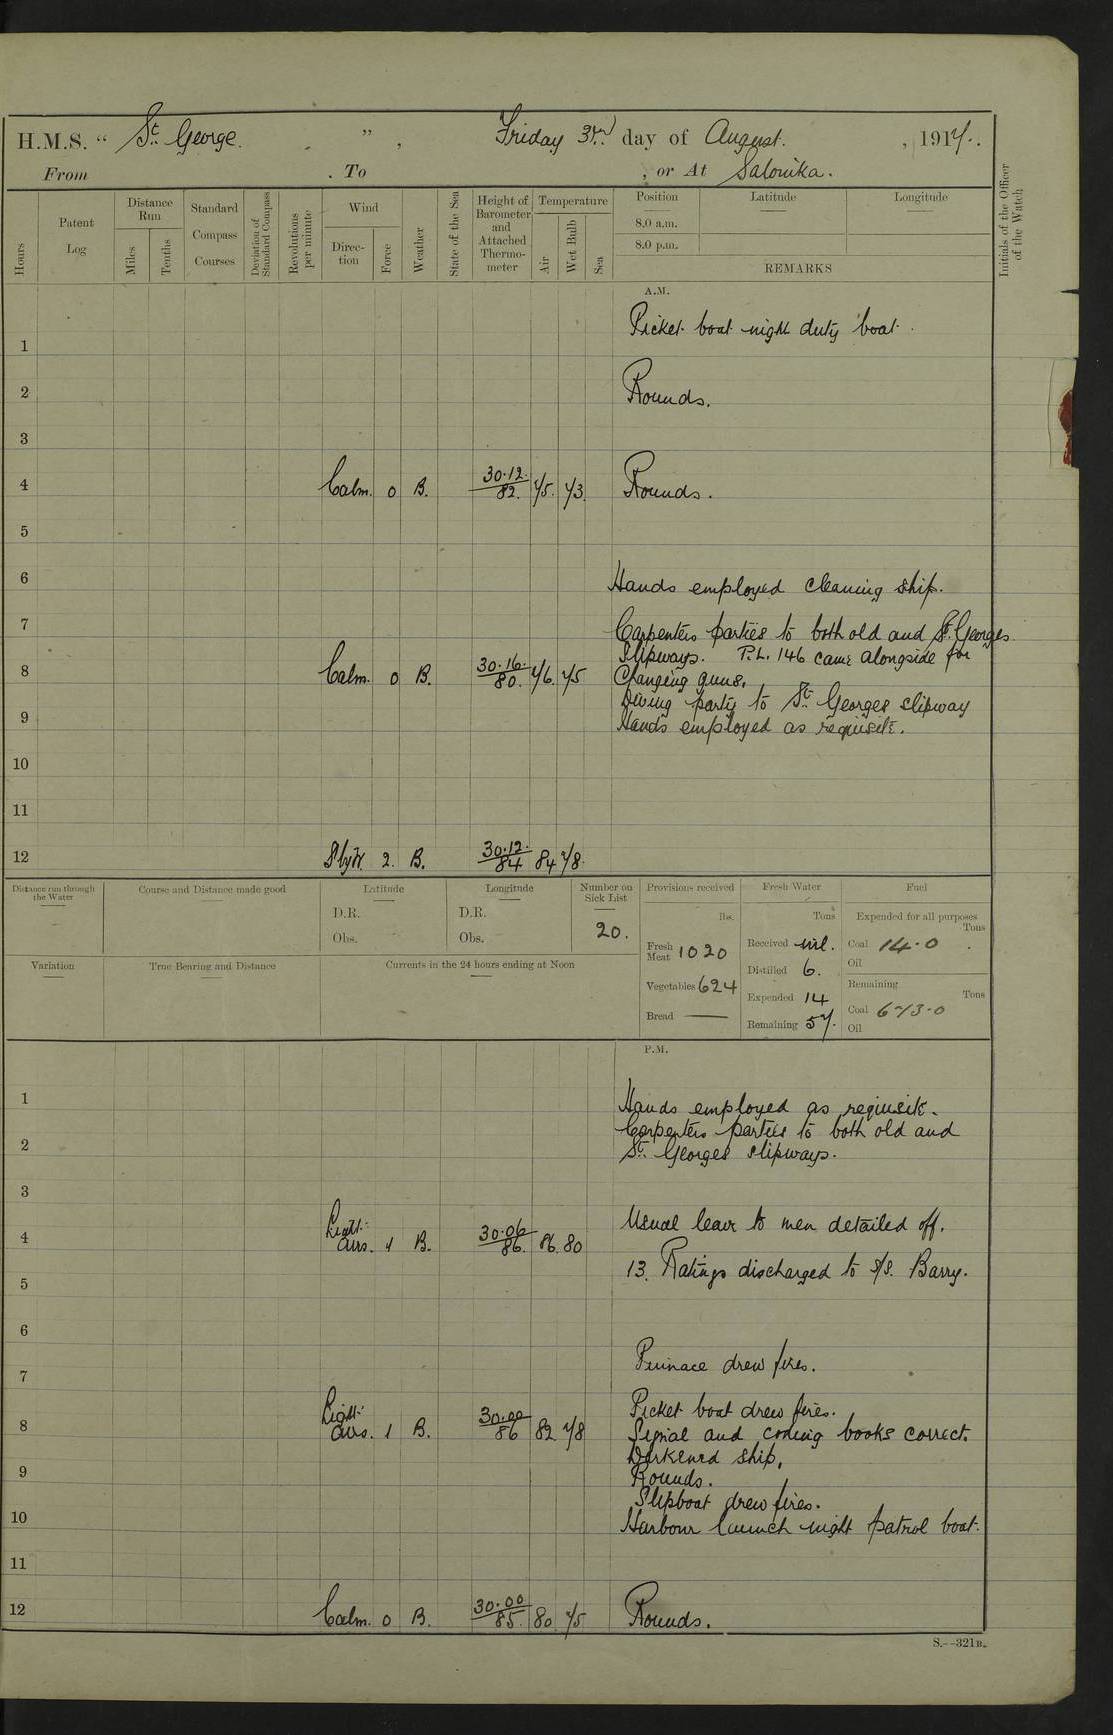 H.M.S. " St. George. ", Friday 3rd day of August. , 1917.
From . To , or At Salonika.
Hours
Patent Log
Distance Run
Miles
Tenths
Standard Compass Courses
Deviation of Standard Compass
Revolutions per minute
Wind
Direction
Force
Weather
State of the Sea
Height of Barometer and Attached Thermometer
Temperature
Air
Wet Bulb
Sea
Position
Latitude
Longitude
8.0 a.m.
8.0 p.m.
REMARKS
Initials of the Officer of the Watch
A.M.
Picket boat night duty boat.
1
2 Rounds.
3
4 Calm. 0 B. 30.12. 82. 75. 73. Rounds.
5
6 Hands employed cleaning ship.
7 Carpenters parties to both old and St. Georges
Slipways. P.L. 146 came alongside for
8 Calm. 0 B. 30.16. 80. 76. 75 Changing guns.
Diving party to St. Georges slipway
9 Hands employed as requisite.
10
11
12 S by W. 2. B. 30.12. 84 84 78.
Distance run through the Water
Course and Distance made good
Latitude
D.R.
Obs.
Longitude
D.R.
Obs.
Number on Sick List
20.
Provisions received
lbs.
Fresh Meat 1020
Vegetables 624
Bread —
Fresh Water
Tons
Received nil.
Distilled 6.
Expended 14
Remaining 57.
Fuel
Expended for all purposes
Tons
Coal 14.0
Oil
Remaining
Tons
Coal 673.0
Oil
Variation
True Bearing and Distance
Currents in the 24 hours ending at Noon
P.M.
1 Hands employed as requisite.
Carpenters parties to both old and
2 St. Georges slipways.
3
Usual leave to men detailed off.
4 Light airs. 1 B. 30.06 86. 86. 80
5 13. Ratings discharged to S/S. Barry.
6
7 Pinnace drew fires.
Picket boat drew fires.
8 Light airs. 1 B. 30.00 86 82 78 Signal and coding books correct.
Darkened ship.
9 Rounds.
Slipboat drew fires.
10 Harbour launch night patrol boat.
11
12 Calm. 0 B. 30.00 85. 80 75 Rounds.
S.—321B.